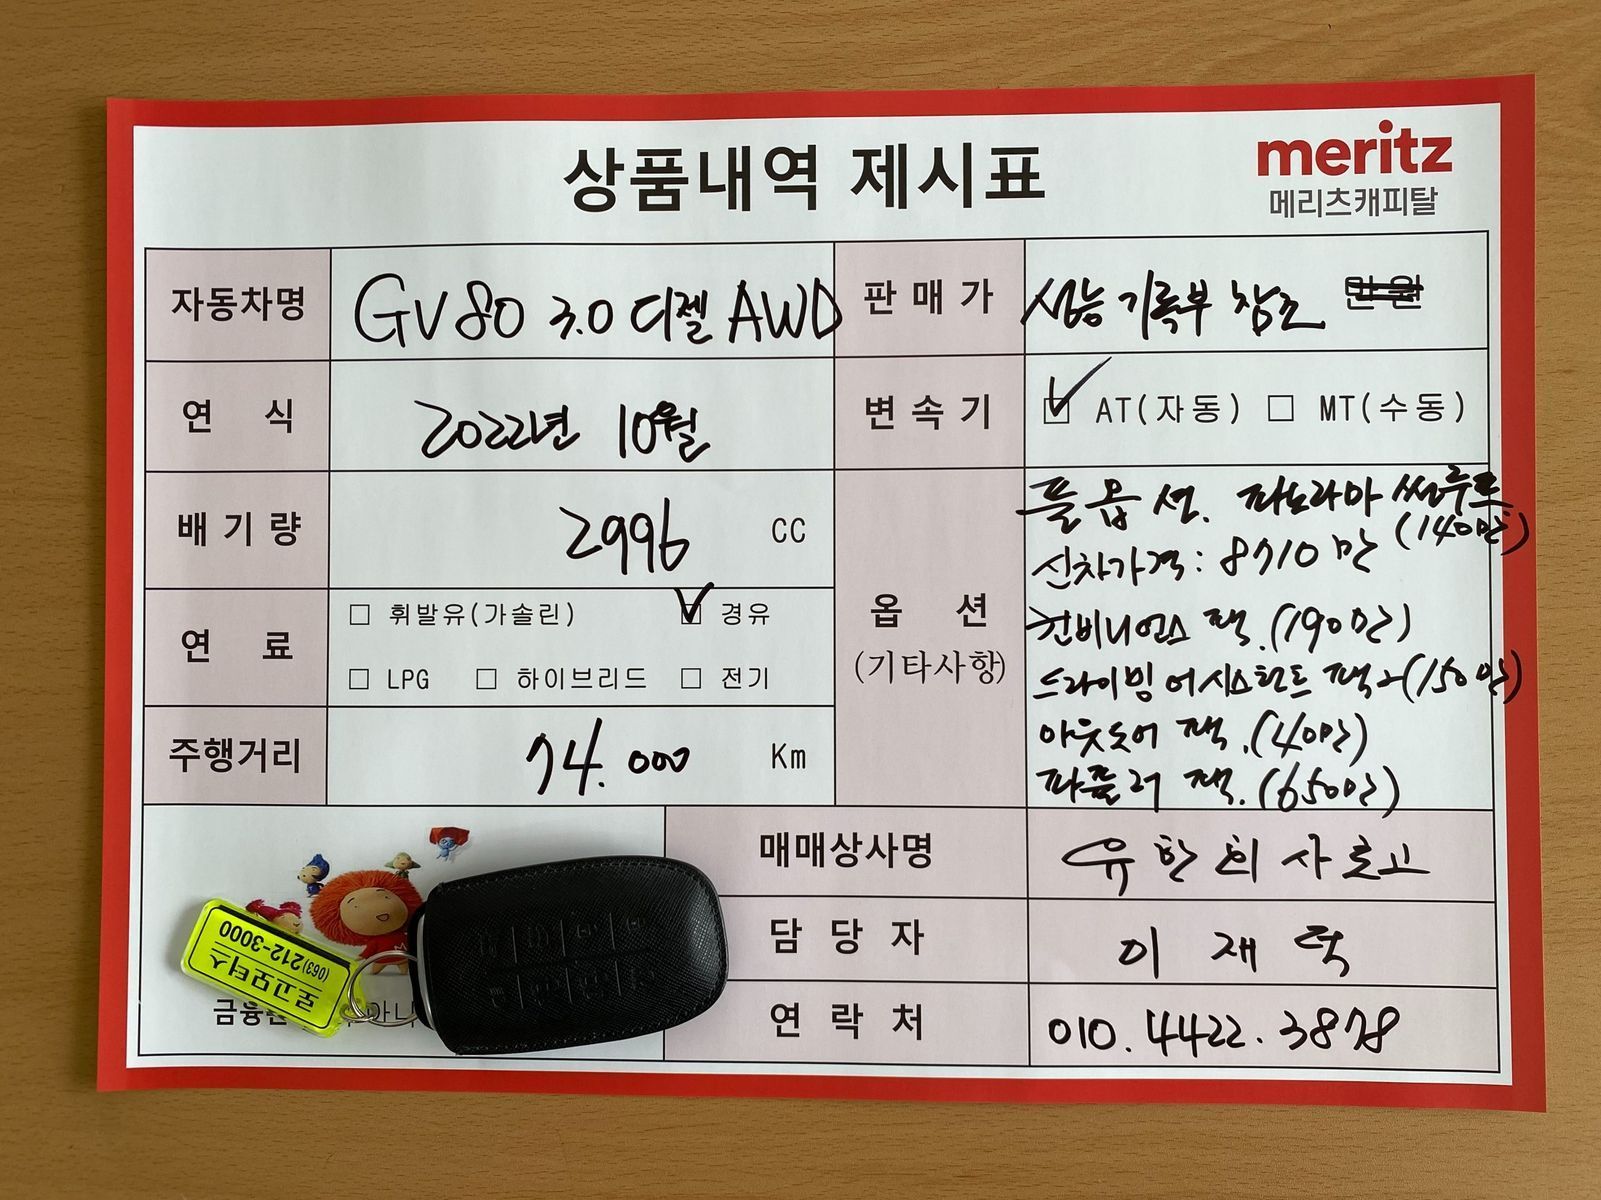 상품내역 제시표
meritz
메리츠캐피탈
자동차명 GV80 3.0 디젤 AWD
판매가 성능기록부 참조 만원
연식 2022년 10월
변속기 AT(자동) MT(수동)
배기량 2996 CC
연료 휘발유(가솔린) 경유
LPG 하이브리드 전기
주행거리 74.000 Km
옵션
(기타사항)
풀옵션. 파노라마 썬루프
(140만)
신차가격: 8710만
컨비니언스 팩.(190만)
드라이빙 어시스턴트 팩2(150만)
아웃도어 팩.(40만)
파퓰러 팩.(650만)
매매상사명 유한회사 로고
담당자 이재덕
연락처 010.4422.3878
로고모터스
(063)212-3000
금융